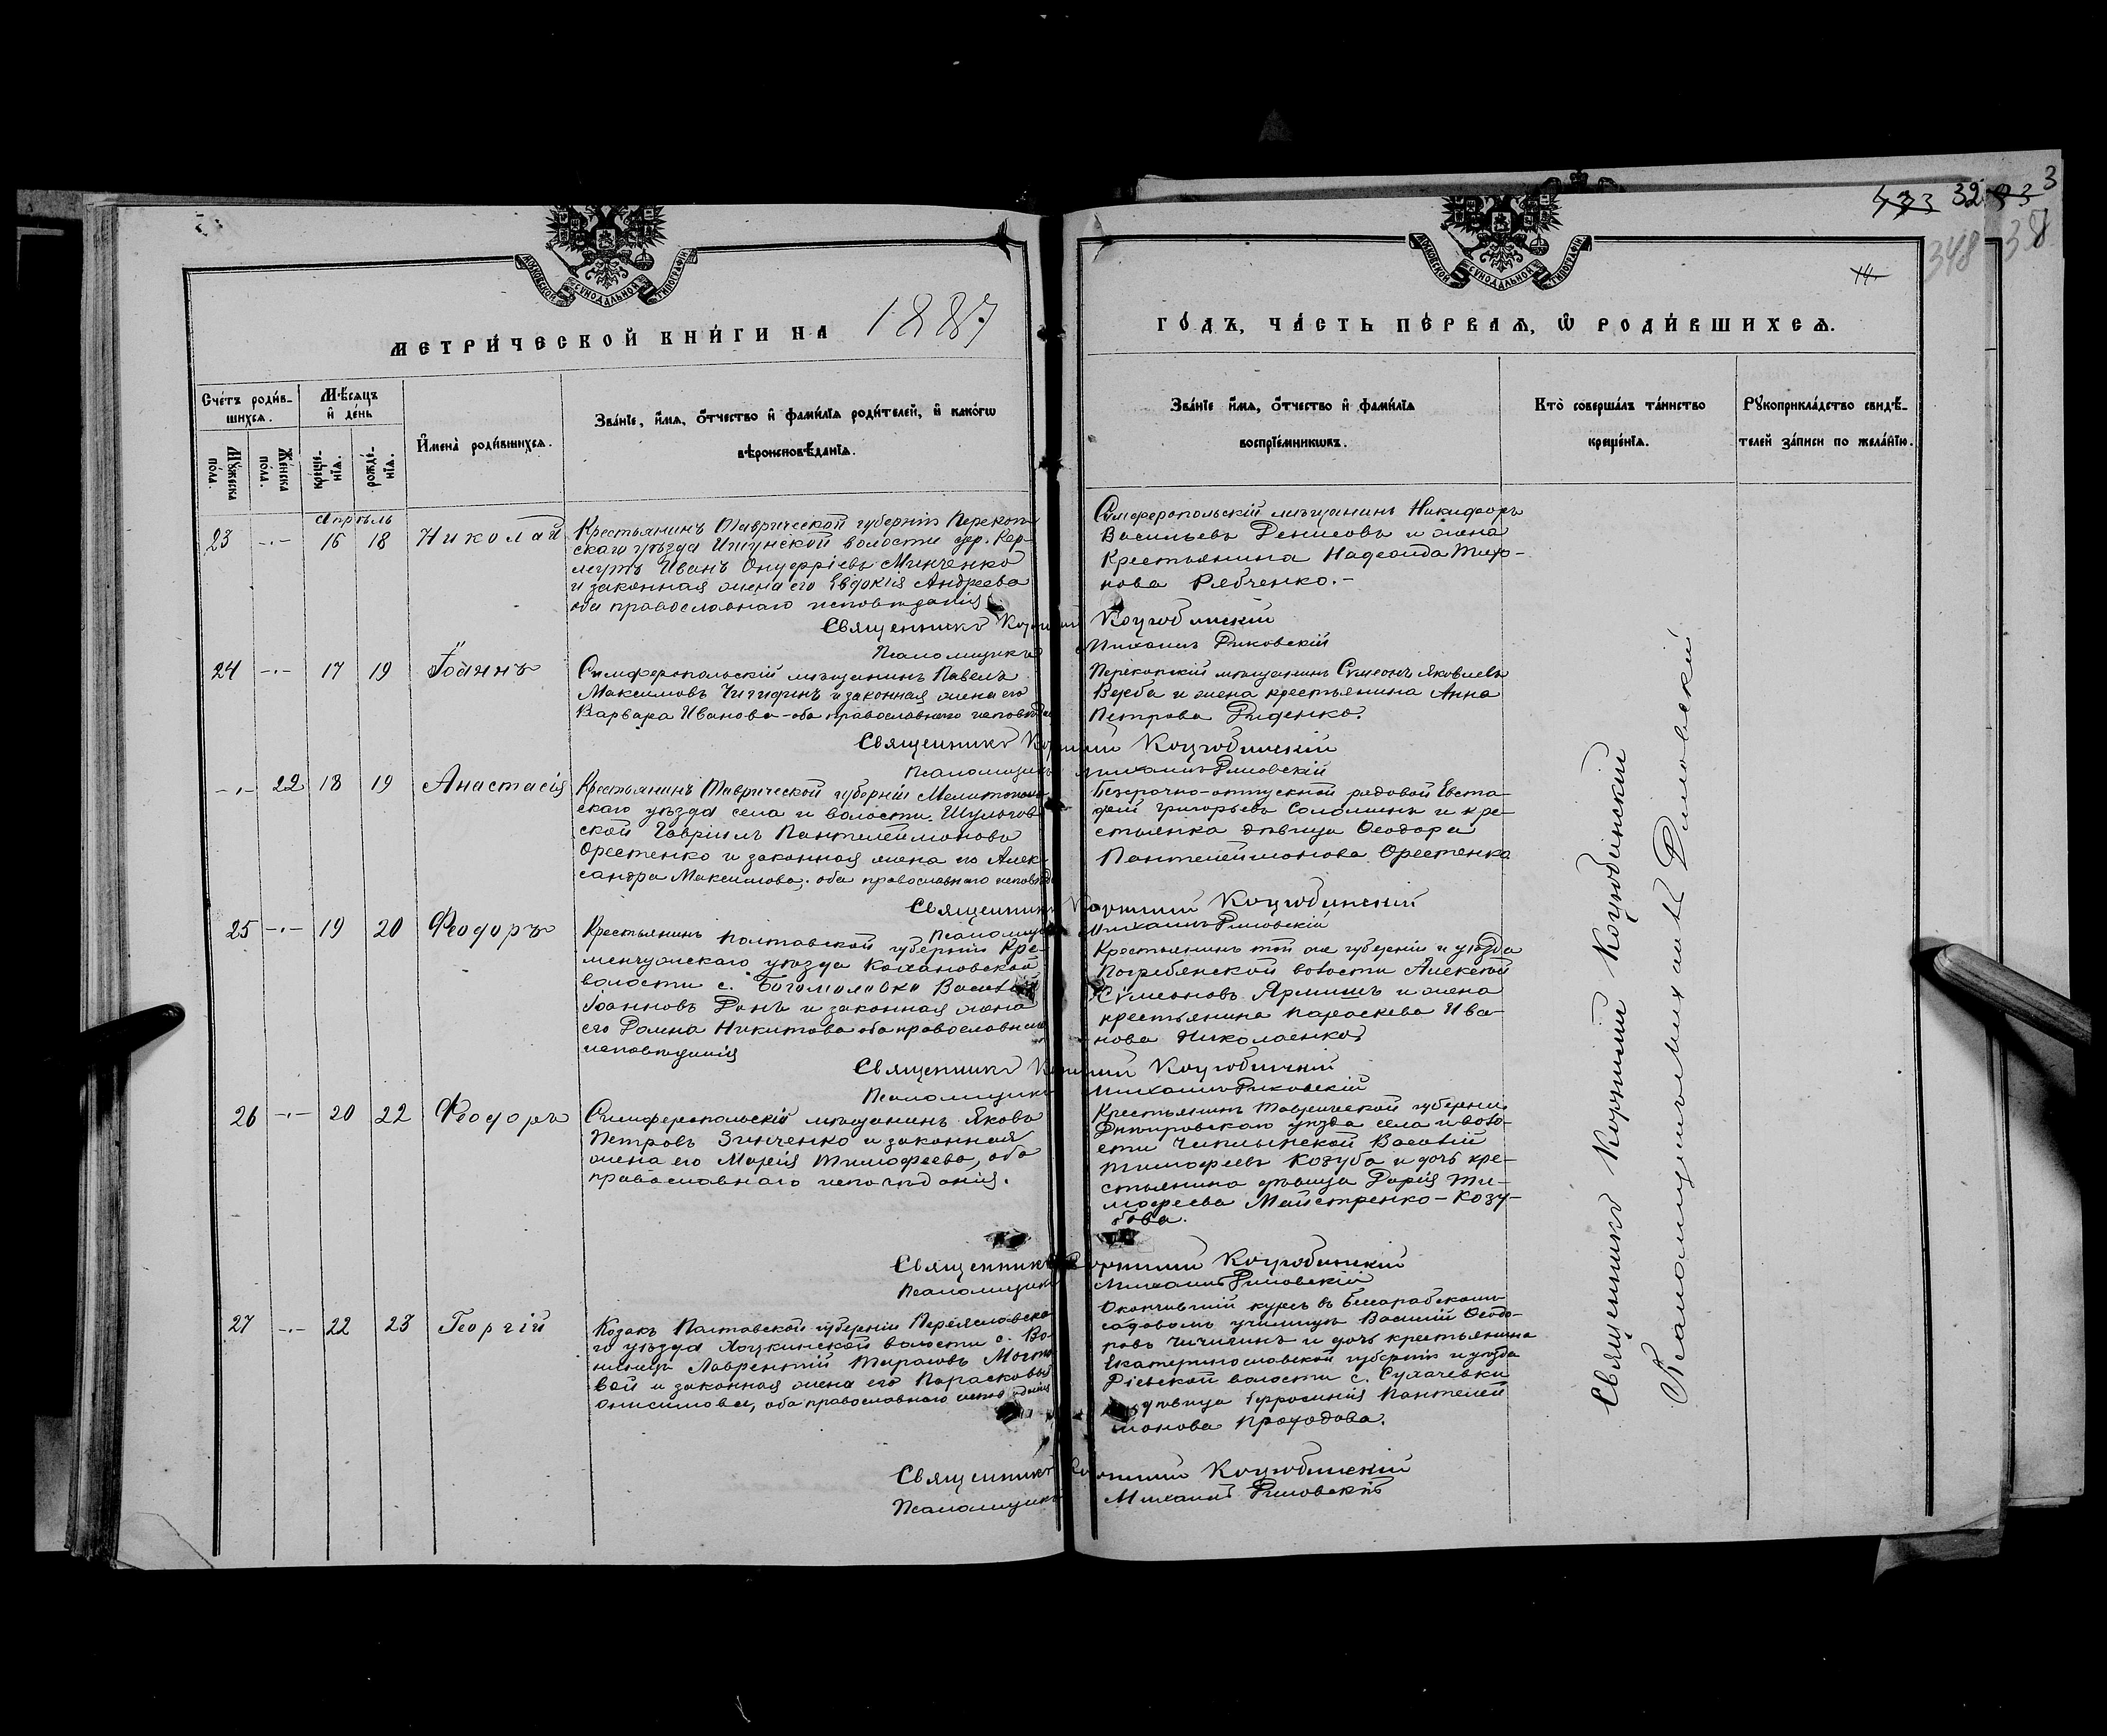 433 32 93 3
348 38
14.
МОСКОВСКОЙ СУНОДАЛЬНОЙ ТИПОГРАФІИ
МОСКОВСКОЙ СУНОДАЛЬНОЙ ТИПОГРАФІИ
МЕТРИ́ЧЕСКОЙ КНИ́ГИ НА 1887
ГО́ДЪ, ЧА́СТЬ ПЕ́РВАѦ, Ѡ҆ РОДИ́ВШИХСѦ.
Сче́тъ роди́в-
шихсѧ.
Мꙋ́жеска по́ла.
Же́нска по́ла.
Мѣ́сѧцъ и҆ де́нь
креще́-
нїѧ.
рожде́-
нїѧ.
И҆мена̀ роди́вшихсѧ.
Зва́нїе, и҆́мѧ, ѻ҆́тчество и҆ фами́лїѧ роди́телей, и҆ како́гѡ
вѣроисповѣ́данїѧ.
Зва́нїе и҆́мѧ, ѻ҆́тчество и҆ фами́лїѧ
воспрїе́мникѡвъ.
Кто̀ соверша́лъ та́инство
креще́нїѧ.
Рꙋкоприкла́дство свидѣ́-
телей за́писи по жела́нїю.
Апрѣль
23 -·- 16 18 Николай
Крестьянинъ Таврической губерніи Перекоп-
скаго уѣзда Ишунской волости дер. Кер-
лешуть Иванъ Онуфріевъ Минченко
и законная жена его Евдокія Андреева
оба православнаго исповѣданія.
Симферопольскій мѣщанинъ Никифоръ
Васильевъ Денисовъ и жена
Крестьянина Надежда Тихо-
нова Рябченко.-
Священникъ Корнилій Коцюбинскій
Псаломщикъ Михаилъ Рыковскій
24 -·- 17 19 Іоаннъ
Симферопольскій мѣщанинъ Павелъ
Максимовъ Чигиринъ и законная жена его
Варвара Иванова - оба православнаго исповѣд
Перекопскій мѣщанинъ Сѵмеонъ Яковлевъ
Верба и жена крестьянина Анна
Петрова Диденко.
Священникъ Корнилій Коцюбинскій
Псаломщикъ Михаилъ Рыковскій
-·- 22 18 19 Анастасія
Крестьянинъ Таврической губерніи Мелитополь-
скаго уѣзда села и волости Шульгов-
ской Гавріилъ Пантелеймоновъ
Орестенко и законная жена его Алек-
сандра Максимова, оба православнаго исповѣд
Безсрочно-отпускной рядовой Евста-
фій Григорьевъ Соломинъ и кре-
стьянка дѣвица Ѳеодора
Пантелеймонова Орестенко
Священникъ Корнилій Коцюбинскій
Псаломщикъ Михаилъ Рыковскій
25 -·- 19 20 Ѳеодоръ
Крестьянинъ Полтавской губерніи Кре-
менчужскаго уѣзда Кахановской
волости с. Богомоловка Василій
Іоанновъ Донъ и законная жена
его Домна Никитова оба православнаго
исповѣданія
Крестьянинъ той же губерніи и уѣзда
Погребянской волости Алексѣй
Сѵмеоновъ Ярмишъ и жена
крестьянина Параскева Ива-
нова Николаенко
Священникъ Корнилій Коцюбинскій
Псаломщикъ Михаилъ Рыковскій
26 -·- 20 22 Ѳеодоръ
Симферопольскій мѣщанинъ Яковъ
Петровъ Зинченко и законная
жена его Марія Тимофеева, оба
православнаго исповѣданія.
Крестьянинъ Таврической губерніи
Днѣпровскаго уѣзда села и воло-
сти Чаплынской Василій
Тимофеевъ Козуба и дочь кре-
стьянина дѣвица Дарія Ти-
мофеева Майстренко-Козу-
бова.
Священникъ Корнилій Коцюбинскій
Псаломщикъ Михаилъ Рыковскій
27 -·- 22 23 Георгій
Козакъ Полтавской губерніи Переяславска-
го уѣзда Хоцкинской волости с.
Лаврентій Тарасовъ
и законная жена его Парасковья
Онисимова, оба православнаго исповѣданія
Окончившій курсъ въ Бессарабскомъ
садовомъ училищѣ Василій Ѳеодо-
ровъ Чичигинъ и дочь крестьянина
Екатеринославской губерніи и уѣзда
волости с. Сухачевки
дѣвица Ефросинія Пантелей
монова Проходова.
Священникъ Корнилій Коцюбинскій
Псаломщикъ Михаилъ Рыковскій
Священникъ Корнилій Коцюбинскій
Псаломщикъ Михаилъ Рыковскій